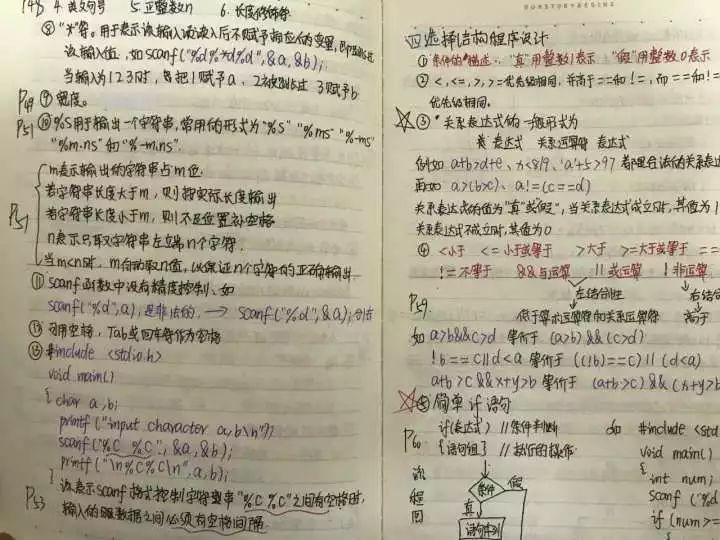 P48 4.英文句号 5.正整数n 6.长度修饰符
⑧ "*"符。用于表示该输入项读入后不赋予相应的变量,即跳过
该输入值。如scanf("%d%*d%d",&a,&b);
当输入为1 2 3时,将把1赋予a、2被跳过 3赋予b
P49 ⑨ 宽度。
P51 ⑩ %s用于输出一个字符串,常用的形式为"%s" "%ms" "%-ms"
"%m.ns"和"%-m.ns".
m表示输出的字符串占m位.
若字符串长度大于m,则按实际长度输出
P51 若字符串长度小于m,则不足位置补空格
n表示只取字符串左端n个字符.
当m<n时,m自动取n值,以保证n个字符的正确输出.
⑪ scanf函数中没有精度控制.如
scanf("%d",a);是非法的. → scanf("%d",&a);合法
可用空格、Tab或回车等作为空格
⑬ #include <stdio.h>
void main()
{ char a,b;
printf("input character a,b\n");
scanf("%C %C",&a,&b);
printf("\n%C%C\n",a,b);
} 该表示scanf格式控制字符型串"%C %C"之间有空格时,
P53 输入的数据之间必须有空格间隔.
四选择结构程序设计
① 条件的描述:"真"用整数1表示 "假"用整数0表示
② <,<=,>,>=优先级相同.并高于==和!=,而==和!=
优先级相同.
③ 关系表达式的一般形式为
表达式 关系运算符 表达式
例如 a+b>d+e、'a'+5>97 都是合法的关系表达
再如 a>(b>c)、a!=(c==d)
关系表达式的值为"真"或"假",当关系表达式成立时,其值为1
关系表达式不成立时,其值为0
④ <小于 <=小于或等于 >大于 >=大于或等于 ==
!=不等于 &&与运算 ||或运算 !非运算
左结合性 右结合
P59 低于算术运算符和关系运算符 高于
如 a>b&&c>d 等价于 (a>b)&&(c>d)
!b==c||d<a 等价于 ((!b)==c)||(d<a)
a+b>c&&x+y>b 等价于 (a+b>c)&&(x+y>b
⑤ 简单if语句
if(表达式) //条件判断 如 #include <std
P60 {语句组} //执行的操作. void main()
{
流程图 条件 假 int num;
真 scanf("%d
语句序列 if(num>=